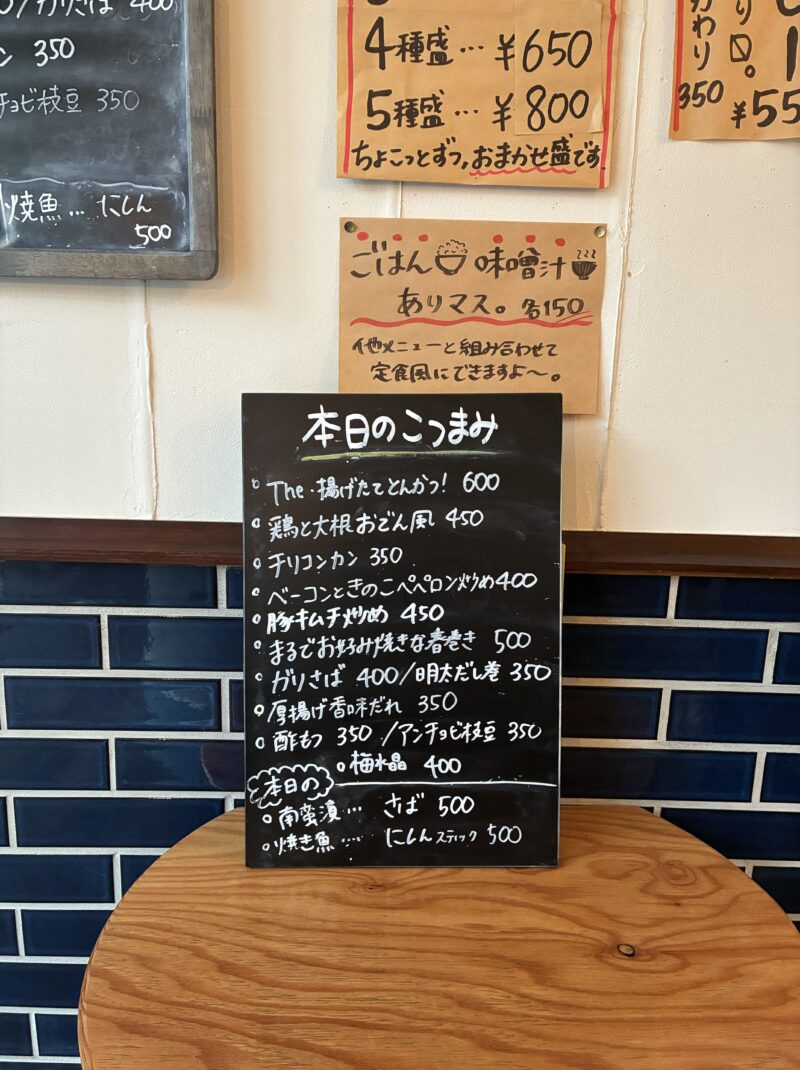 /ガリさば 400
ン 350
チョビ枝豆 350
焼魚… にしん
500
4種盛…¥650
5種盛…¥800
ちょこっとずつ,おまかせ盛です
わり
350
り
¥55
ごはん 味噌汁
ありマス。各150
他メニューと組み合わせて
定食風にできますよ〜。
本日のこつまみ
The・揚げたてとんかつ! 600
鶏と大根おでん風 450
チリコンカン 350
ベーコンときのこペペロン炒め400
豚キムチ炒め 450
まるでお好み焼きな春巻き 500
ガリさば 400/明太だし巻 350
厚揚げ香味だれ 350
酢もつ 350 /アンチョビ枝豆 350
梅水晶 400
本日の
南蛮漬… さば 500
焼き魚…… にしんスティック 500